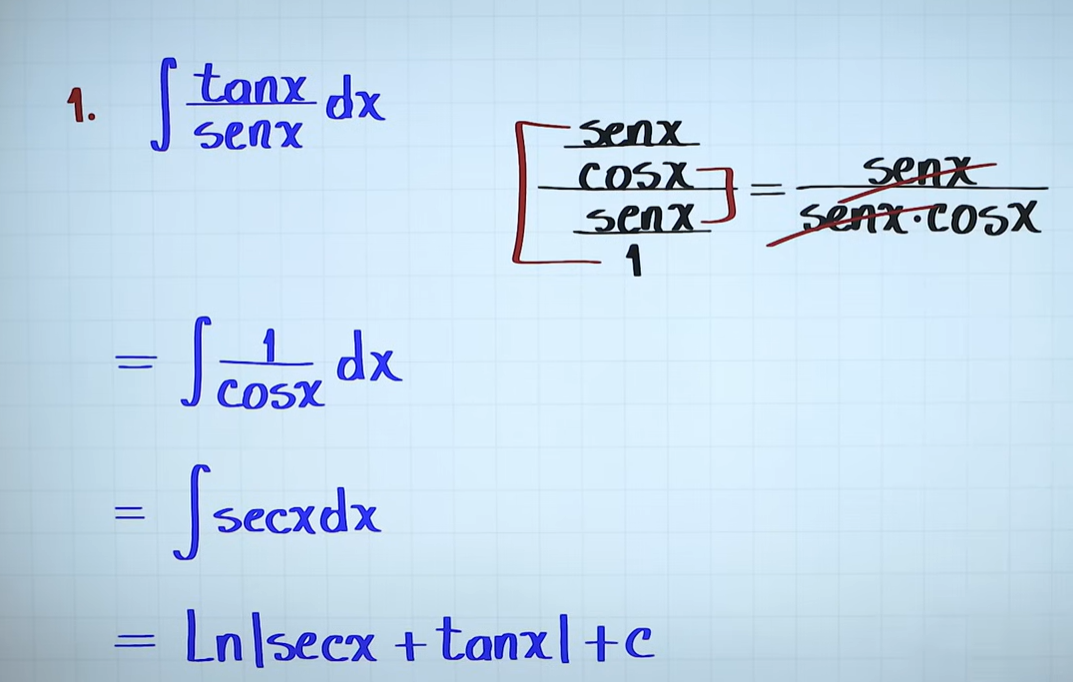 1. ∫ tanx/senx dx
senx/cosx / senx/1 = senx/senx·cosx
= ∫ 1/cosx dx
= ∫ secxdx
= Ln|secx + tanx| + c